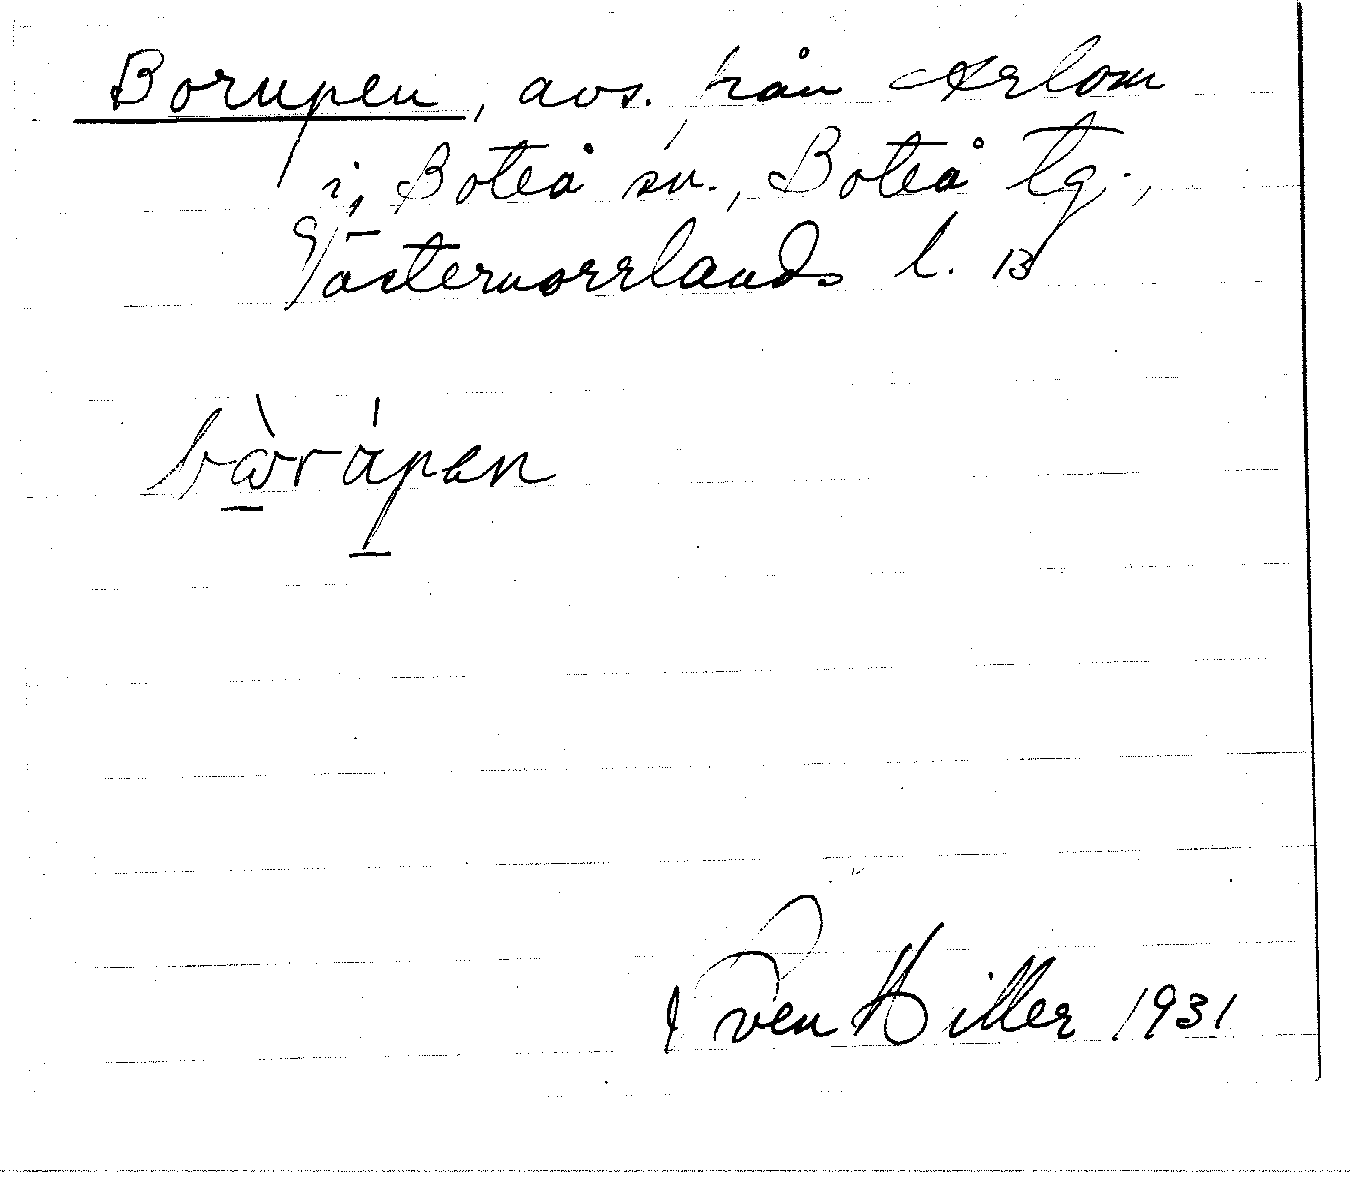 Borupen, avs. från Arlom
i Boteå sn., Boteå tg.,
Västernorrlands l. B
Sven Hiller 1931